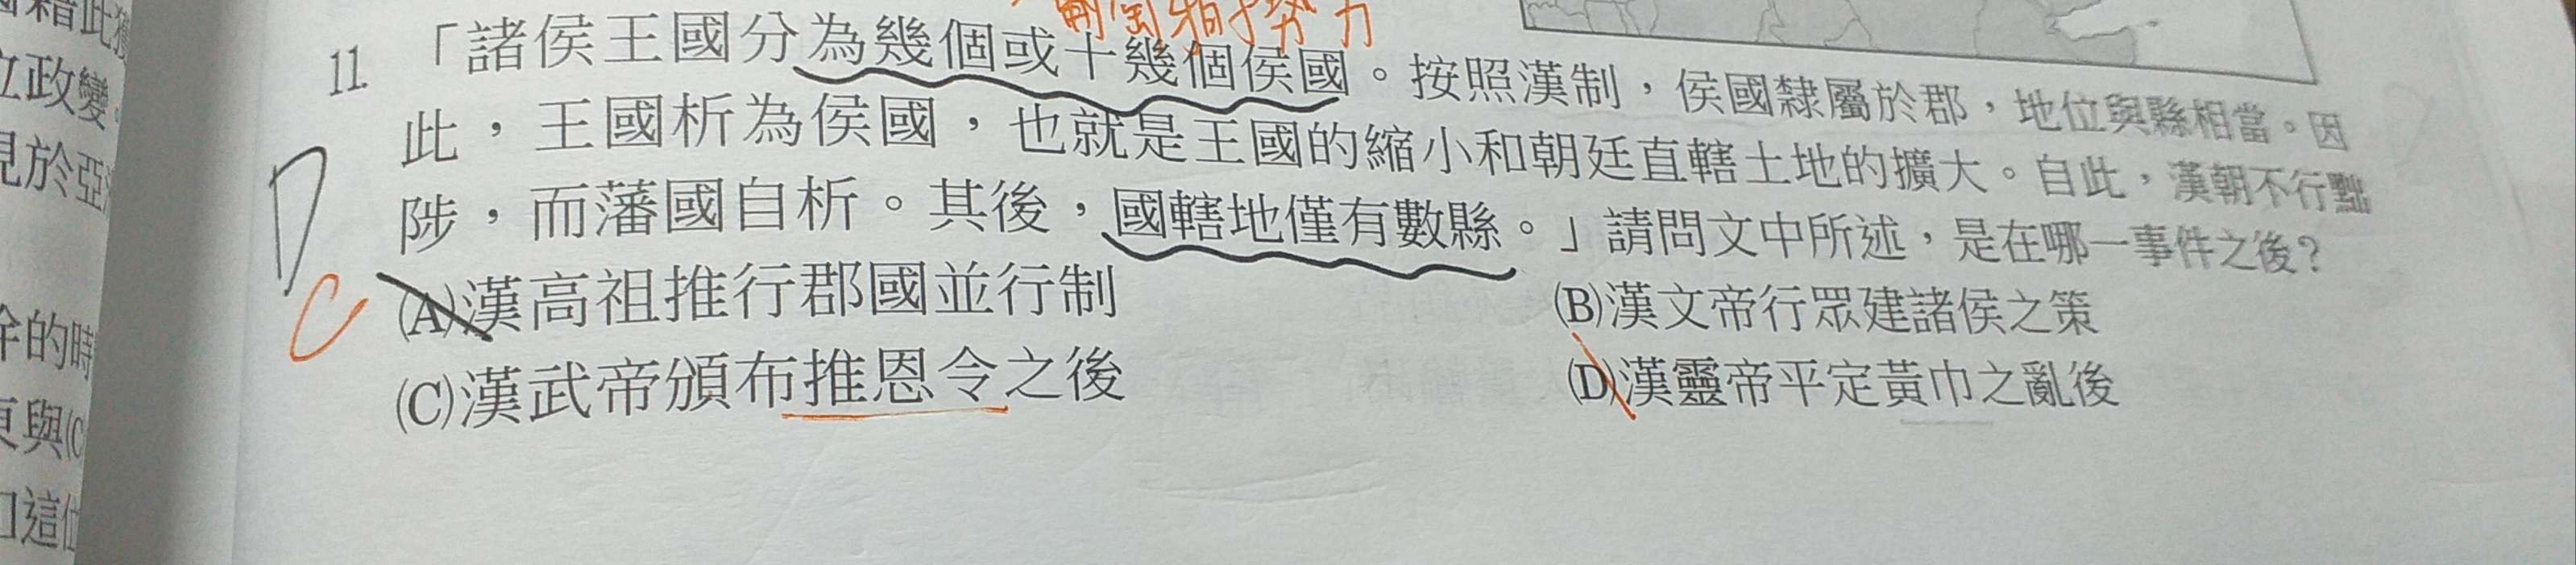 削弱諸侯勢力
11 「諸侯王國分為幾個或十幾個侯國。按照漢制，侯國隸屬於郡，地位與縣相當。因
此，王國析為侯國，也就是王國的縮小和朝廷直轄土地的擴大。自此，漢朝不行黜
陟，而藩國自析。其後，國轄地僅有數縣。」請問文中所述，是在哪一事件之後？
D
C
(A)漢高祖推行郡國並行制 (B)漢文帝行眾建諸侯之策
(C)漢武帝頒布推恩令之後 (D)漢靈帝平定黃巾之亂後
立政變。
見於亞
的時
與(C
這